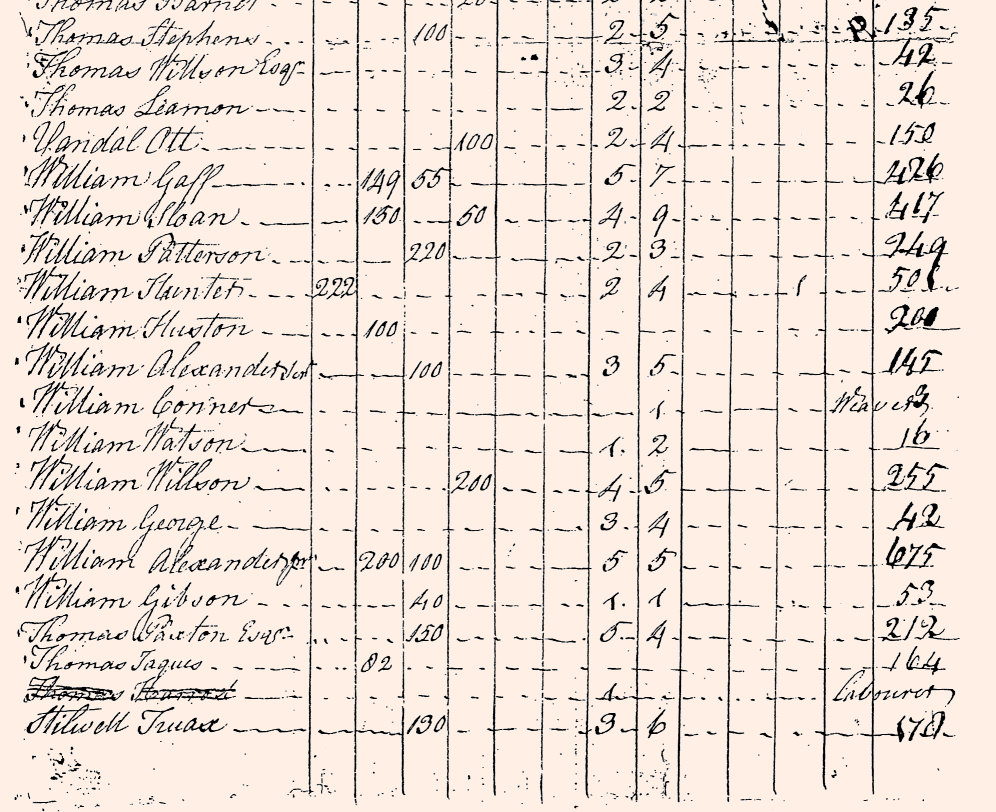 Thomas Barnet 20 2
Thomas Stephens 100 2 5 P. 135
Thomas Willson Esqr 3 4 42
Thomas Leamon 2 2 26
Vandal Ott 100 2 4 150
William Gaff 149 55 5 7 426
William Sloan 150 50 4 9 417
William Patterson 220 2 3 249
William Hunter 222 2 4 1 501
William Huston 100 200
William Alexander 100 3 5 145
William Conner 1 Weaver
William Watson 1 2 16
William Willson 200 4 5 255
William George 3 4 42
William Alexander 200 100 5 5 675
William Gibson 40 1 1 53
Thomas Paxton Esqr 150 5 4 212
Thomas Jaques 82 164
Thomas 1 Labourer
Stilwell Truax 130 3 6